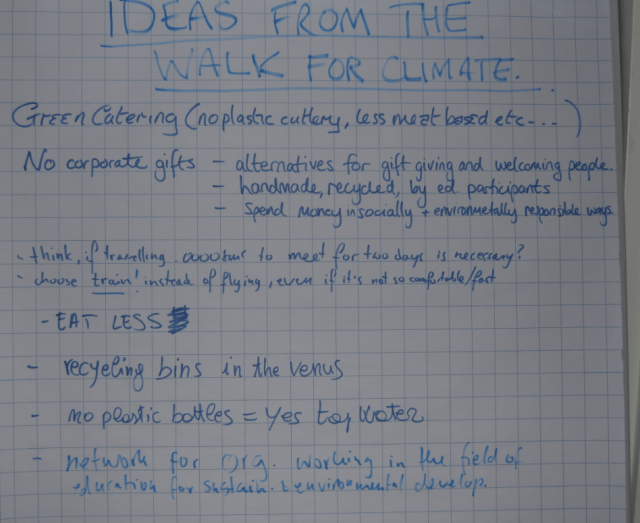 IDEAS FROM THE
WALK FOR CLIMATE.
Green Catering (no plastic cutlery, less meat based etc-...)
No corporate gifts - alternatives for gift giving and welcoming people.
- handmade, recycled, by ed. participants
- Spend money in socially + environmetally responsible ways
- think, if travelling 2000km to meet for two days is necessary?
- choose train! instead of flying, even if it's not so comfortable/fast
- EAT LESS
- recycling bins in the venus
- no plastic bottles = Yes tap water
- network for org. working in the field of
education for sustain. & environmental develop.